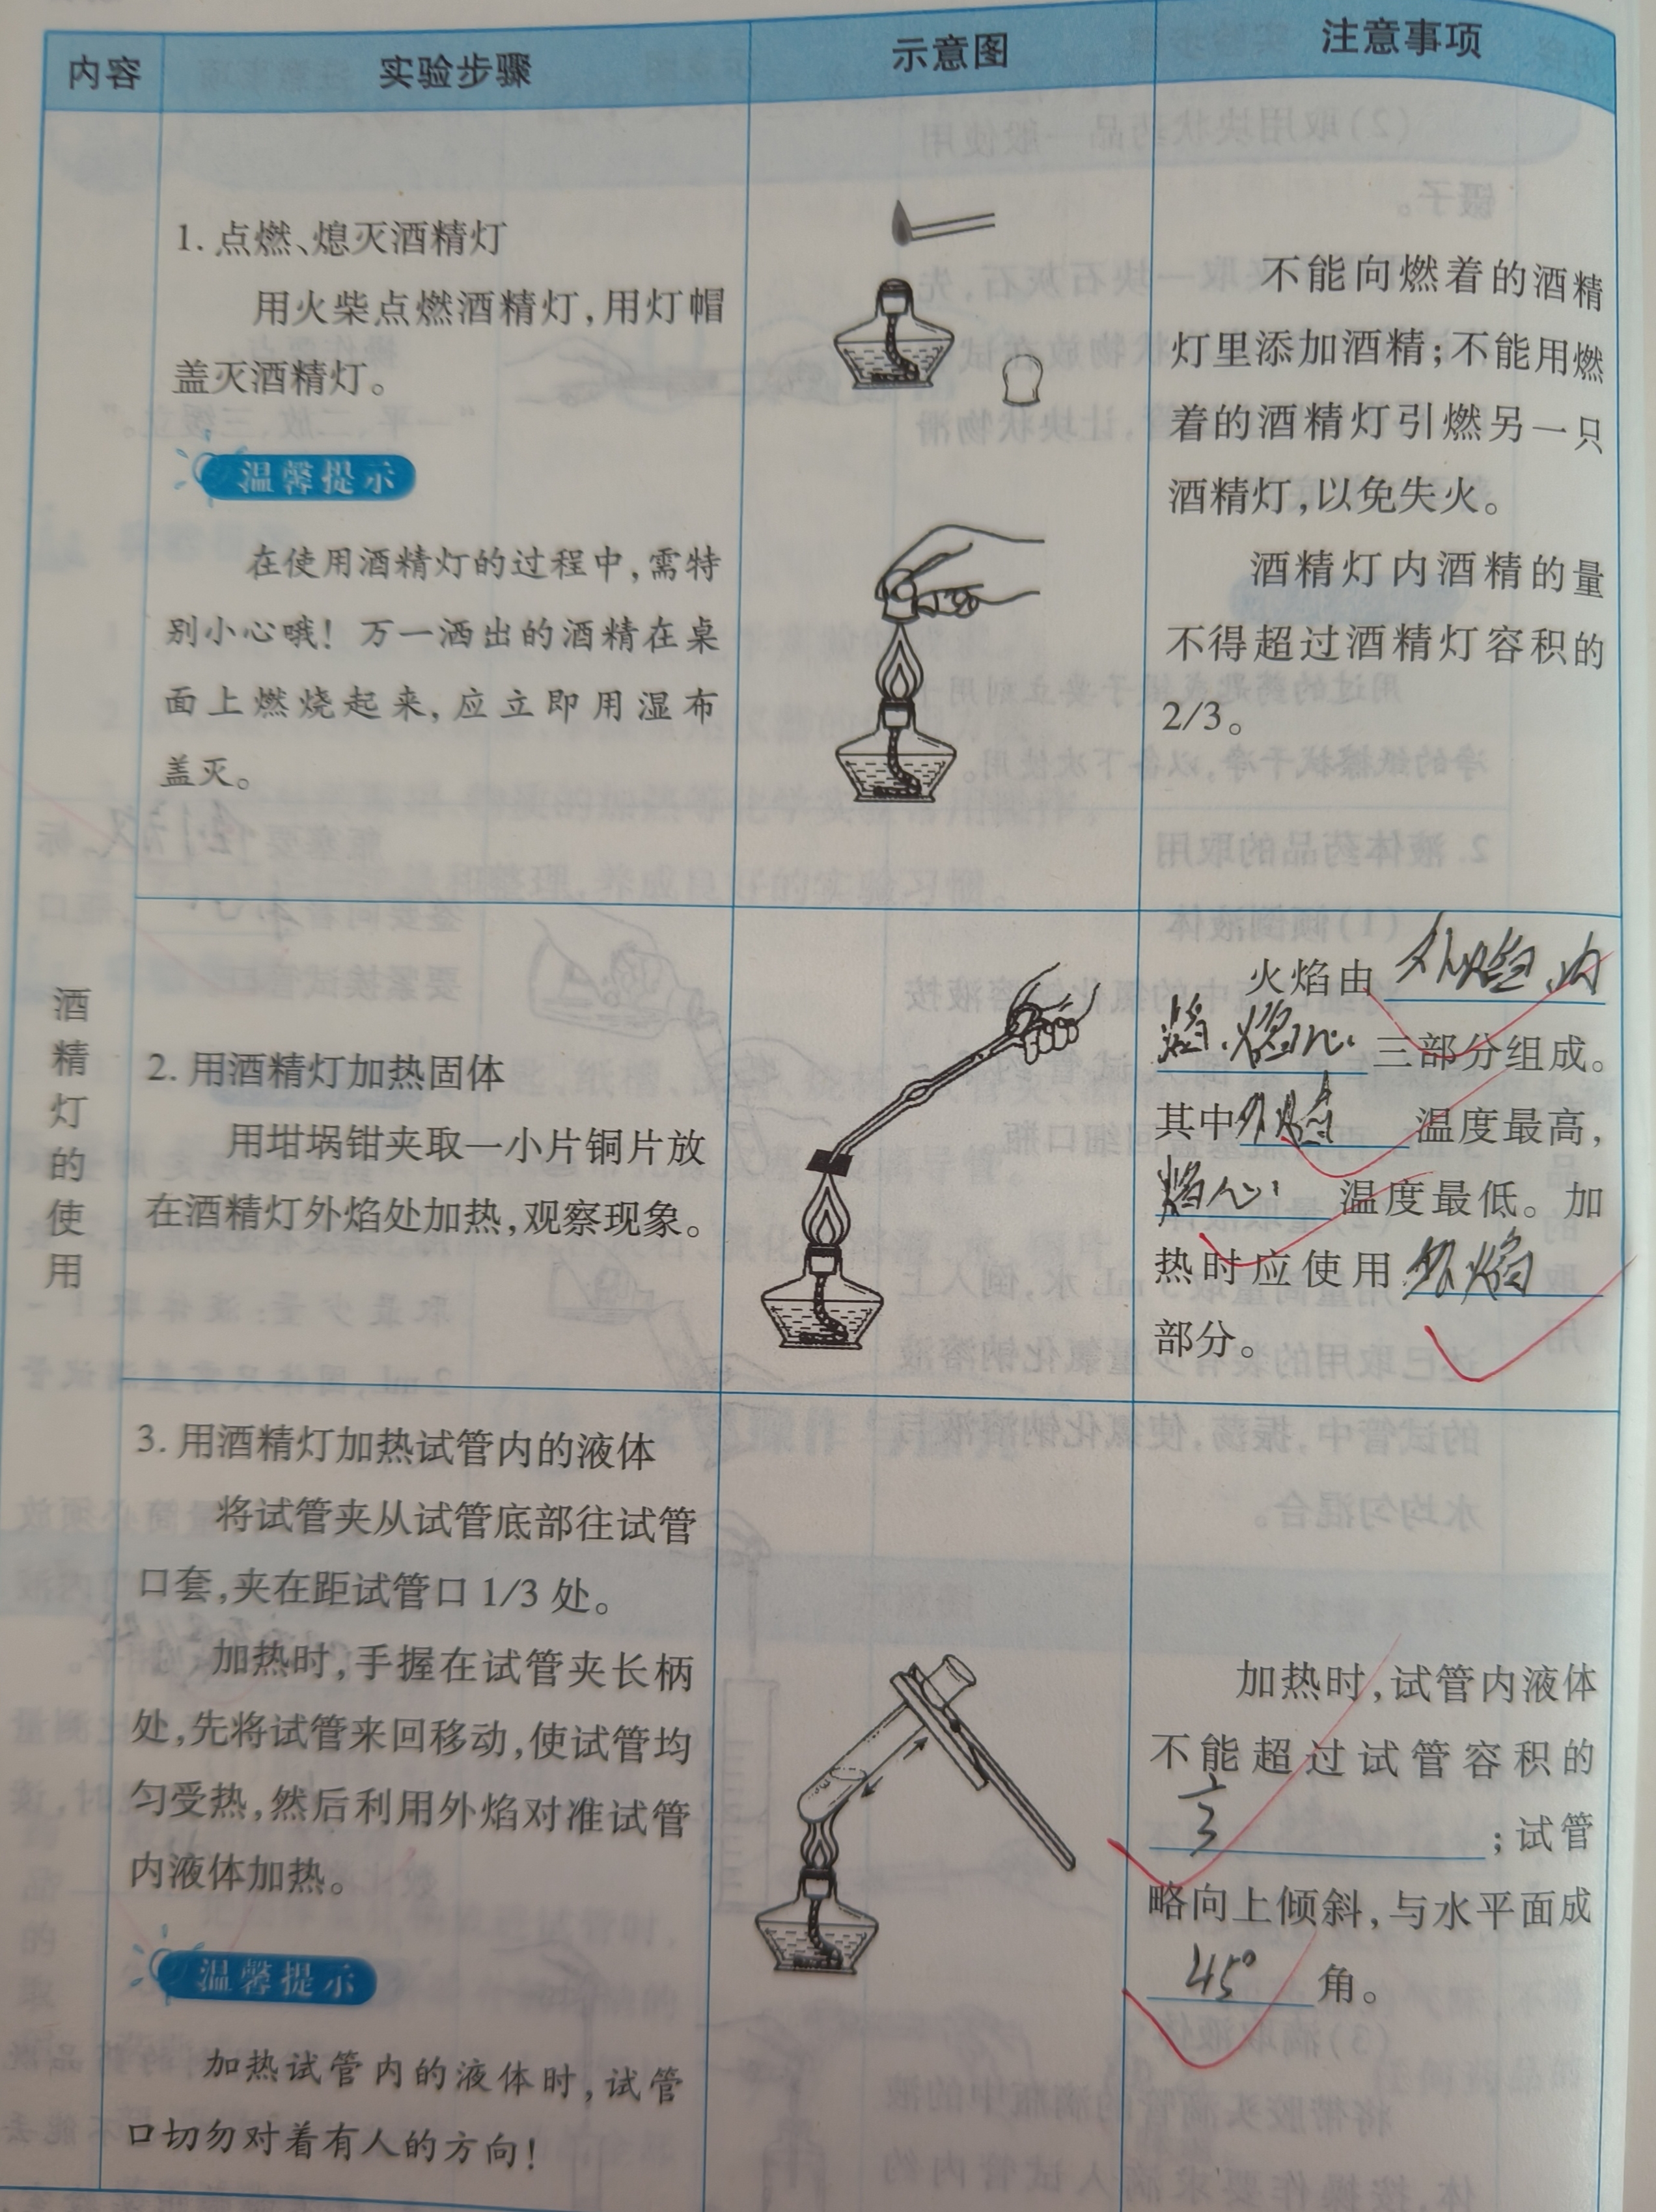 内容 实验步骤 示意图 注意事项
酒精灯的使用
1. 点燃、熄灭酒精灯
用火柴点燃酒精灯,用灯帽
盖灭酒精灯。
温馨提示
在使用酒精灯的过程中,需特
别小心哦！万一洒出的酒精在桌
面上燃烧起来,应立即用湿布
盖灭。
不能向燃着的酒精
灯里添加酒精；不能用燃
着的酒精灯引燃另一只
酒精灯,以免失火。
酒精灯内酒精的量
不得超过酒精灯容积的
2/3。
2. 用酒精灯加热固体
用坩埚钳夹取一小片铜片放
在酒精灯外焰处加热,观察现象。
火焰由外焰、内
焰、焰心三部分组成。
其中外焰温度最高,
焰心温度最低。加
热时应使用外焰
部分。
3. 用酒精灯加热试管内的液体
将试管夹从试管底部往试管
口套,夹在距试管口 1/3 处。
加热时,手握在试管夹长柄
处,先将试管来回移动,使试管均
匀受热,然后利用外焰对准试管
内液体加热。
温馨提示
加热试管内的液体时,试管
口切勿对着有人的方向！
加热时,试管内液体
不能超过试管容积的
；试管
略向上倾斜,与水平面成
45° 角。